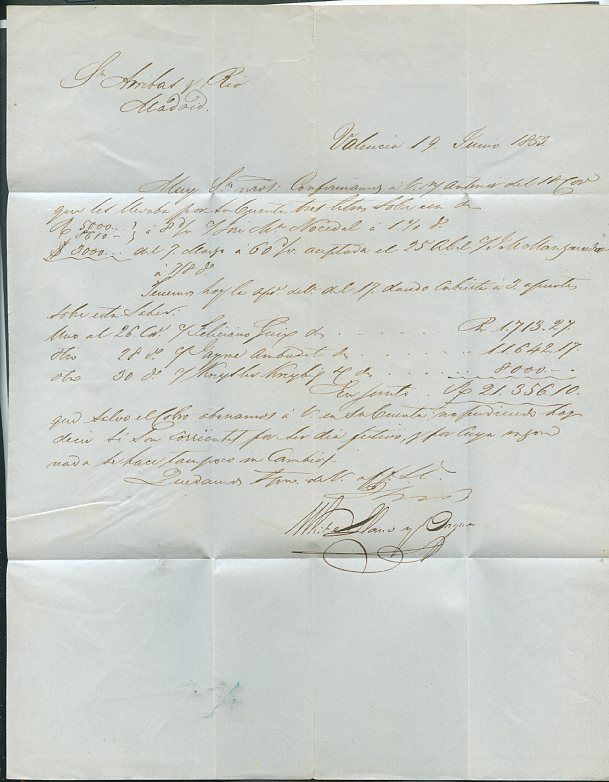 Sres Arribas y Rio
Madrid.
Valencia 19 Junio 1853
Muy Sres nros: Confirmamos á V. ntra anterior del 18 Cor
que les llevaba por su Cuenta tres sobre esa de
5000 á 8 d/v Nocedal á 1% d.
5610
$ 3000 del 7 Marzo á 60 d/v. aceptada el 25 Abril
á 7/8 d.
Tenemos hoy la del 17. dando Cubierta á 3. apuntes
sobre esta Saber:
Uno al 26 Cte. Feliciano Guix de R. 1.713.27
otro 28 do. Jayme Ambudit de 11.642.17
otro 30 do. de 8000
En junto 21.356.10.
que salvo el Cobro abonamos á V. en su Cuenta no pudiendo hoy
decir si son Corrientes por ser dia festivo, y por Cuya razon
nada se hace tampoco en Cambios.
Quedamos de V.
White Llano y